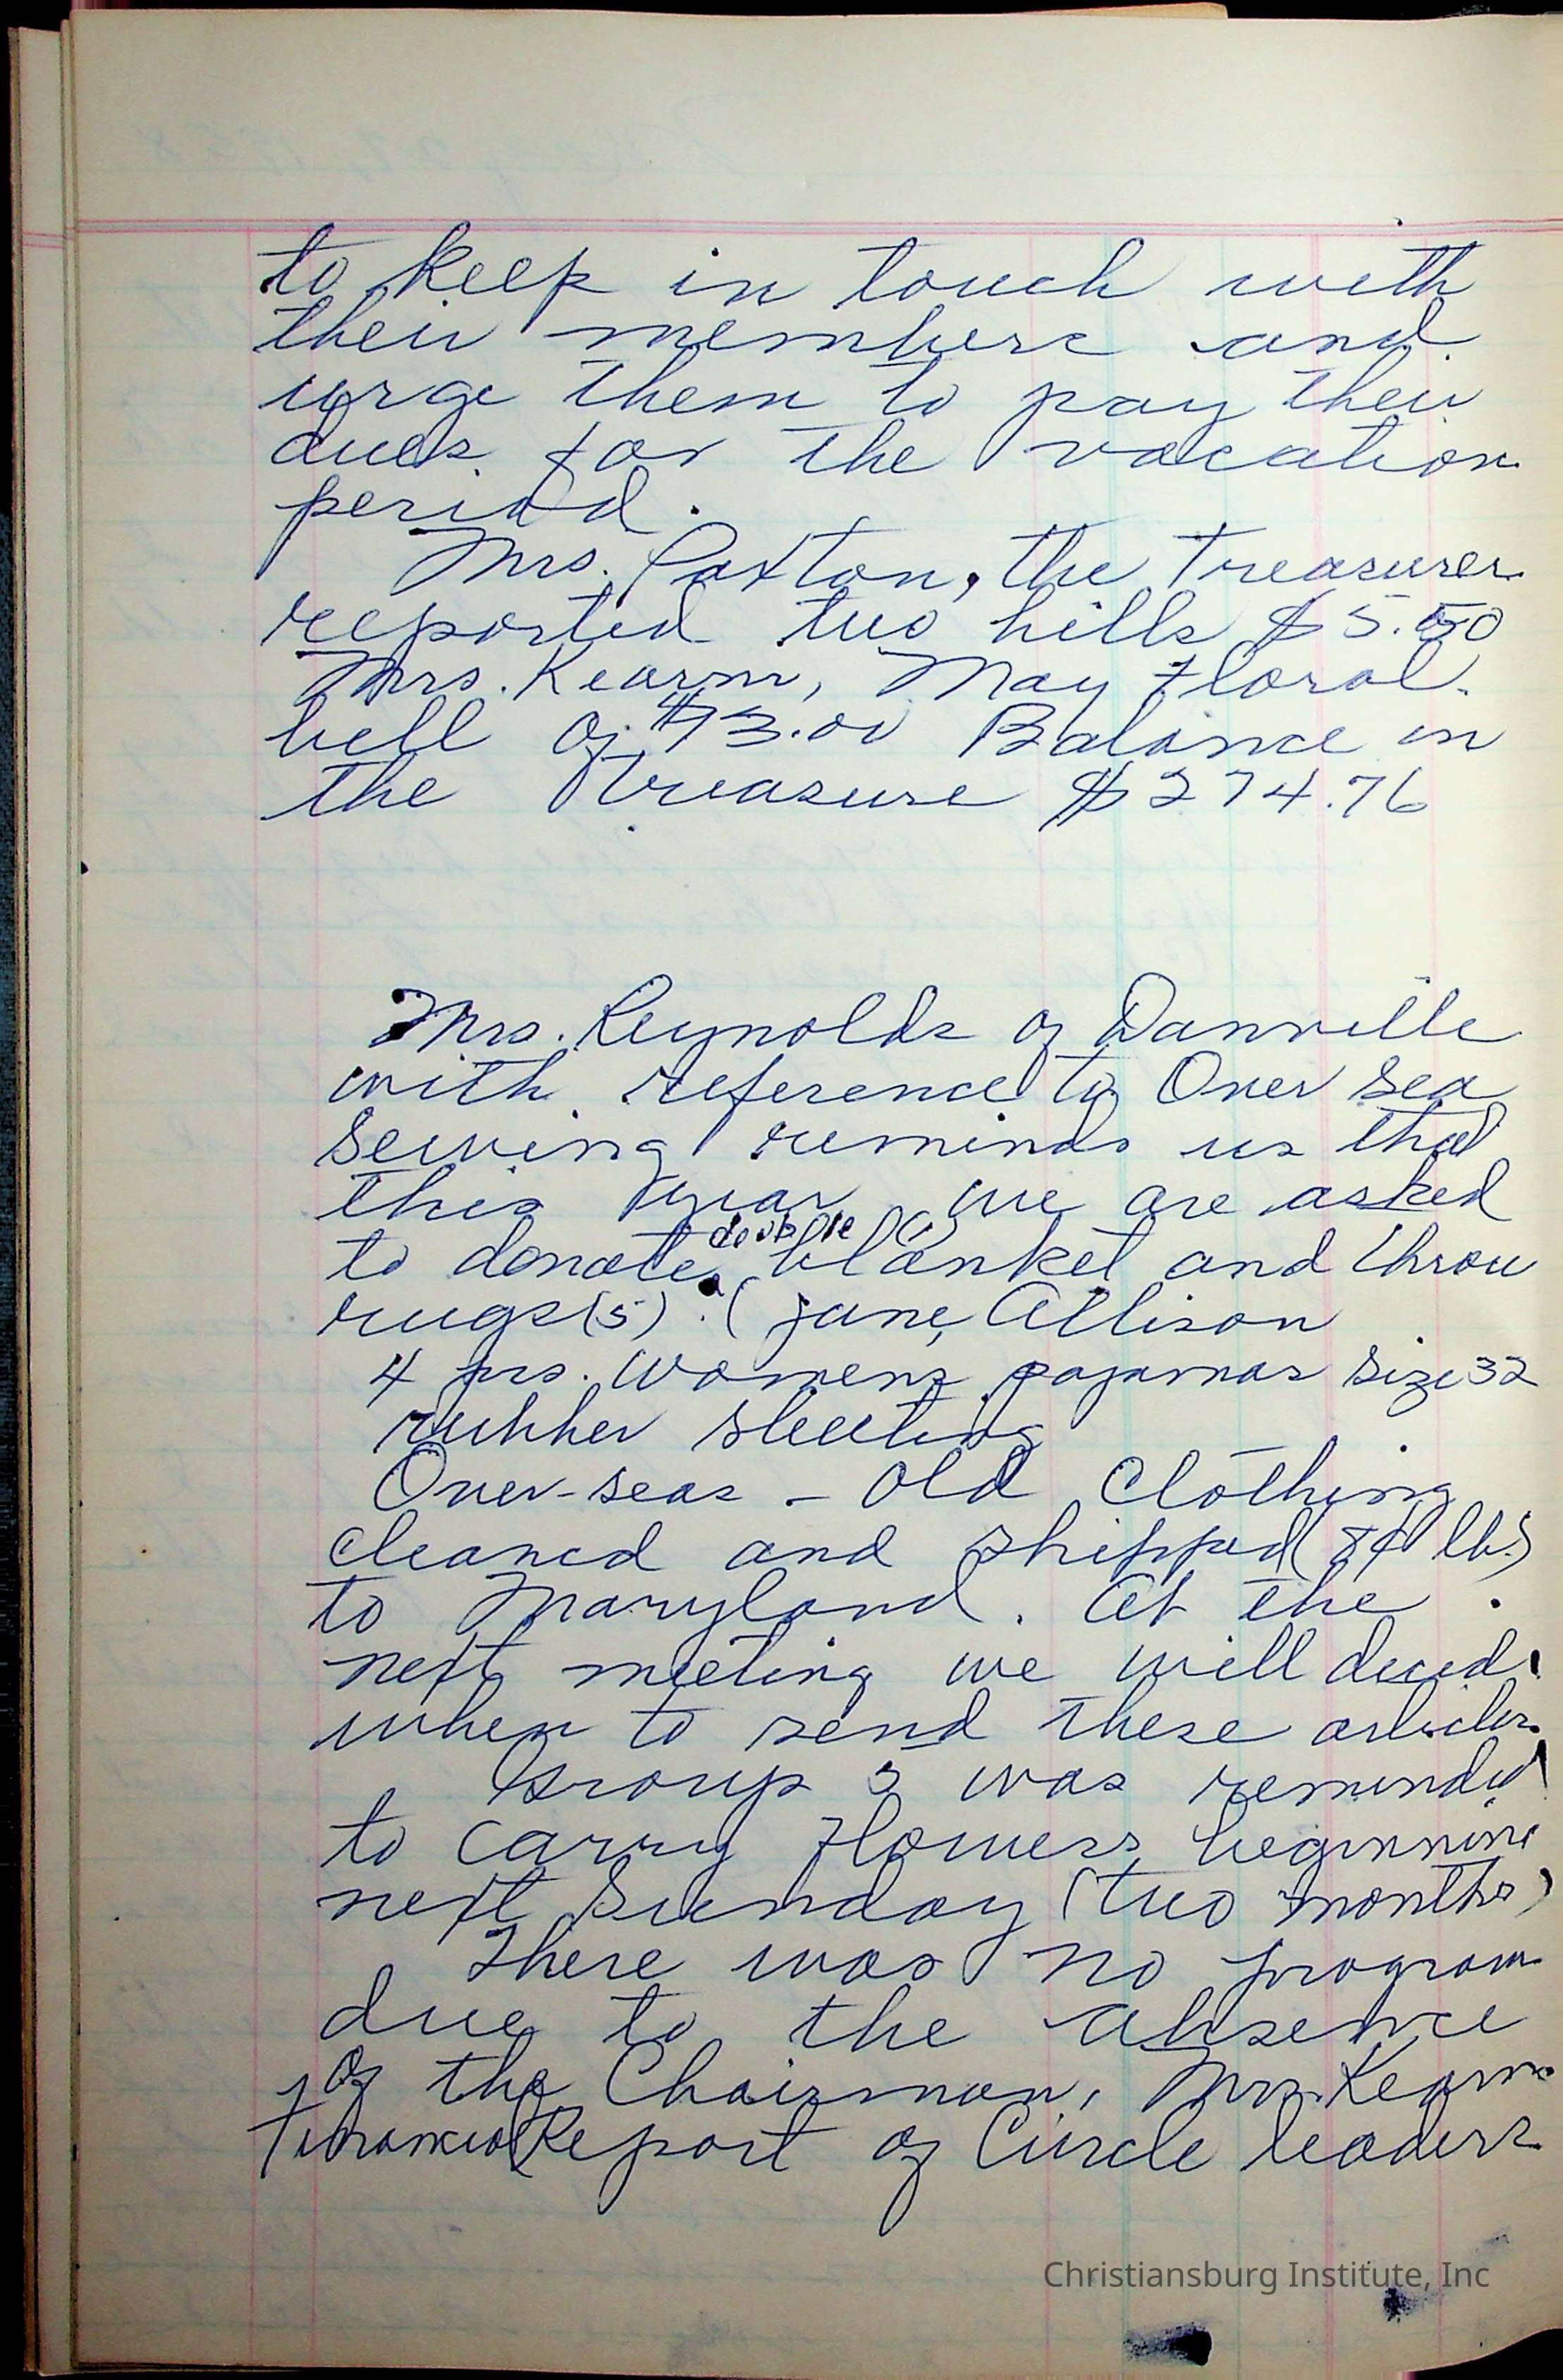 to keep in touch with
their members and
urge them to pay their
dues for the vacation
period.
Mrs. Paxton, the Treasurer
reported two bills $5.50
Mrs. Kearns, May Floral
bill of $13.00 Balance in
the treasure $274.76
Mrs. Reynolds of Danville
with reference to Over Sea
Sewing reminds us that
this year we are asked
double
to donate a blanket and throw
rugs(s). (Jane Allison
4 prs. Womens pajamas size 32
rubber sheeting
Over-seas - Old Clothing
cleaned and shipped ( lbs)
to Maryland. At the
next meeting we will decide
when to send these articles.
Group 3 was reminded
to carry flowers beginning
next Sunday (two months)
There was no program
due to the absence
of the Chairman, Mrs. Kearns
Financial Report of Circle leaders
Christiansburg Institute, Inc